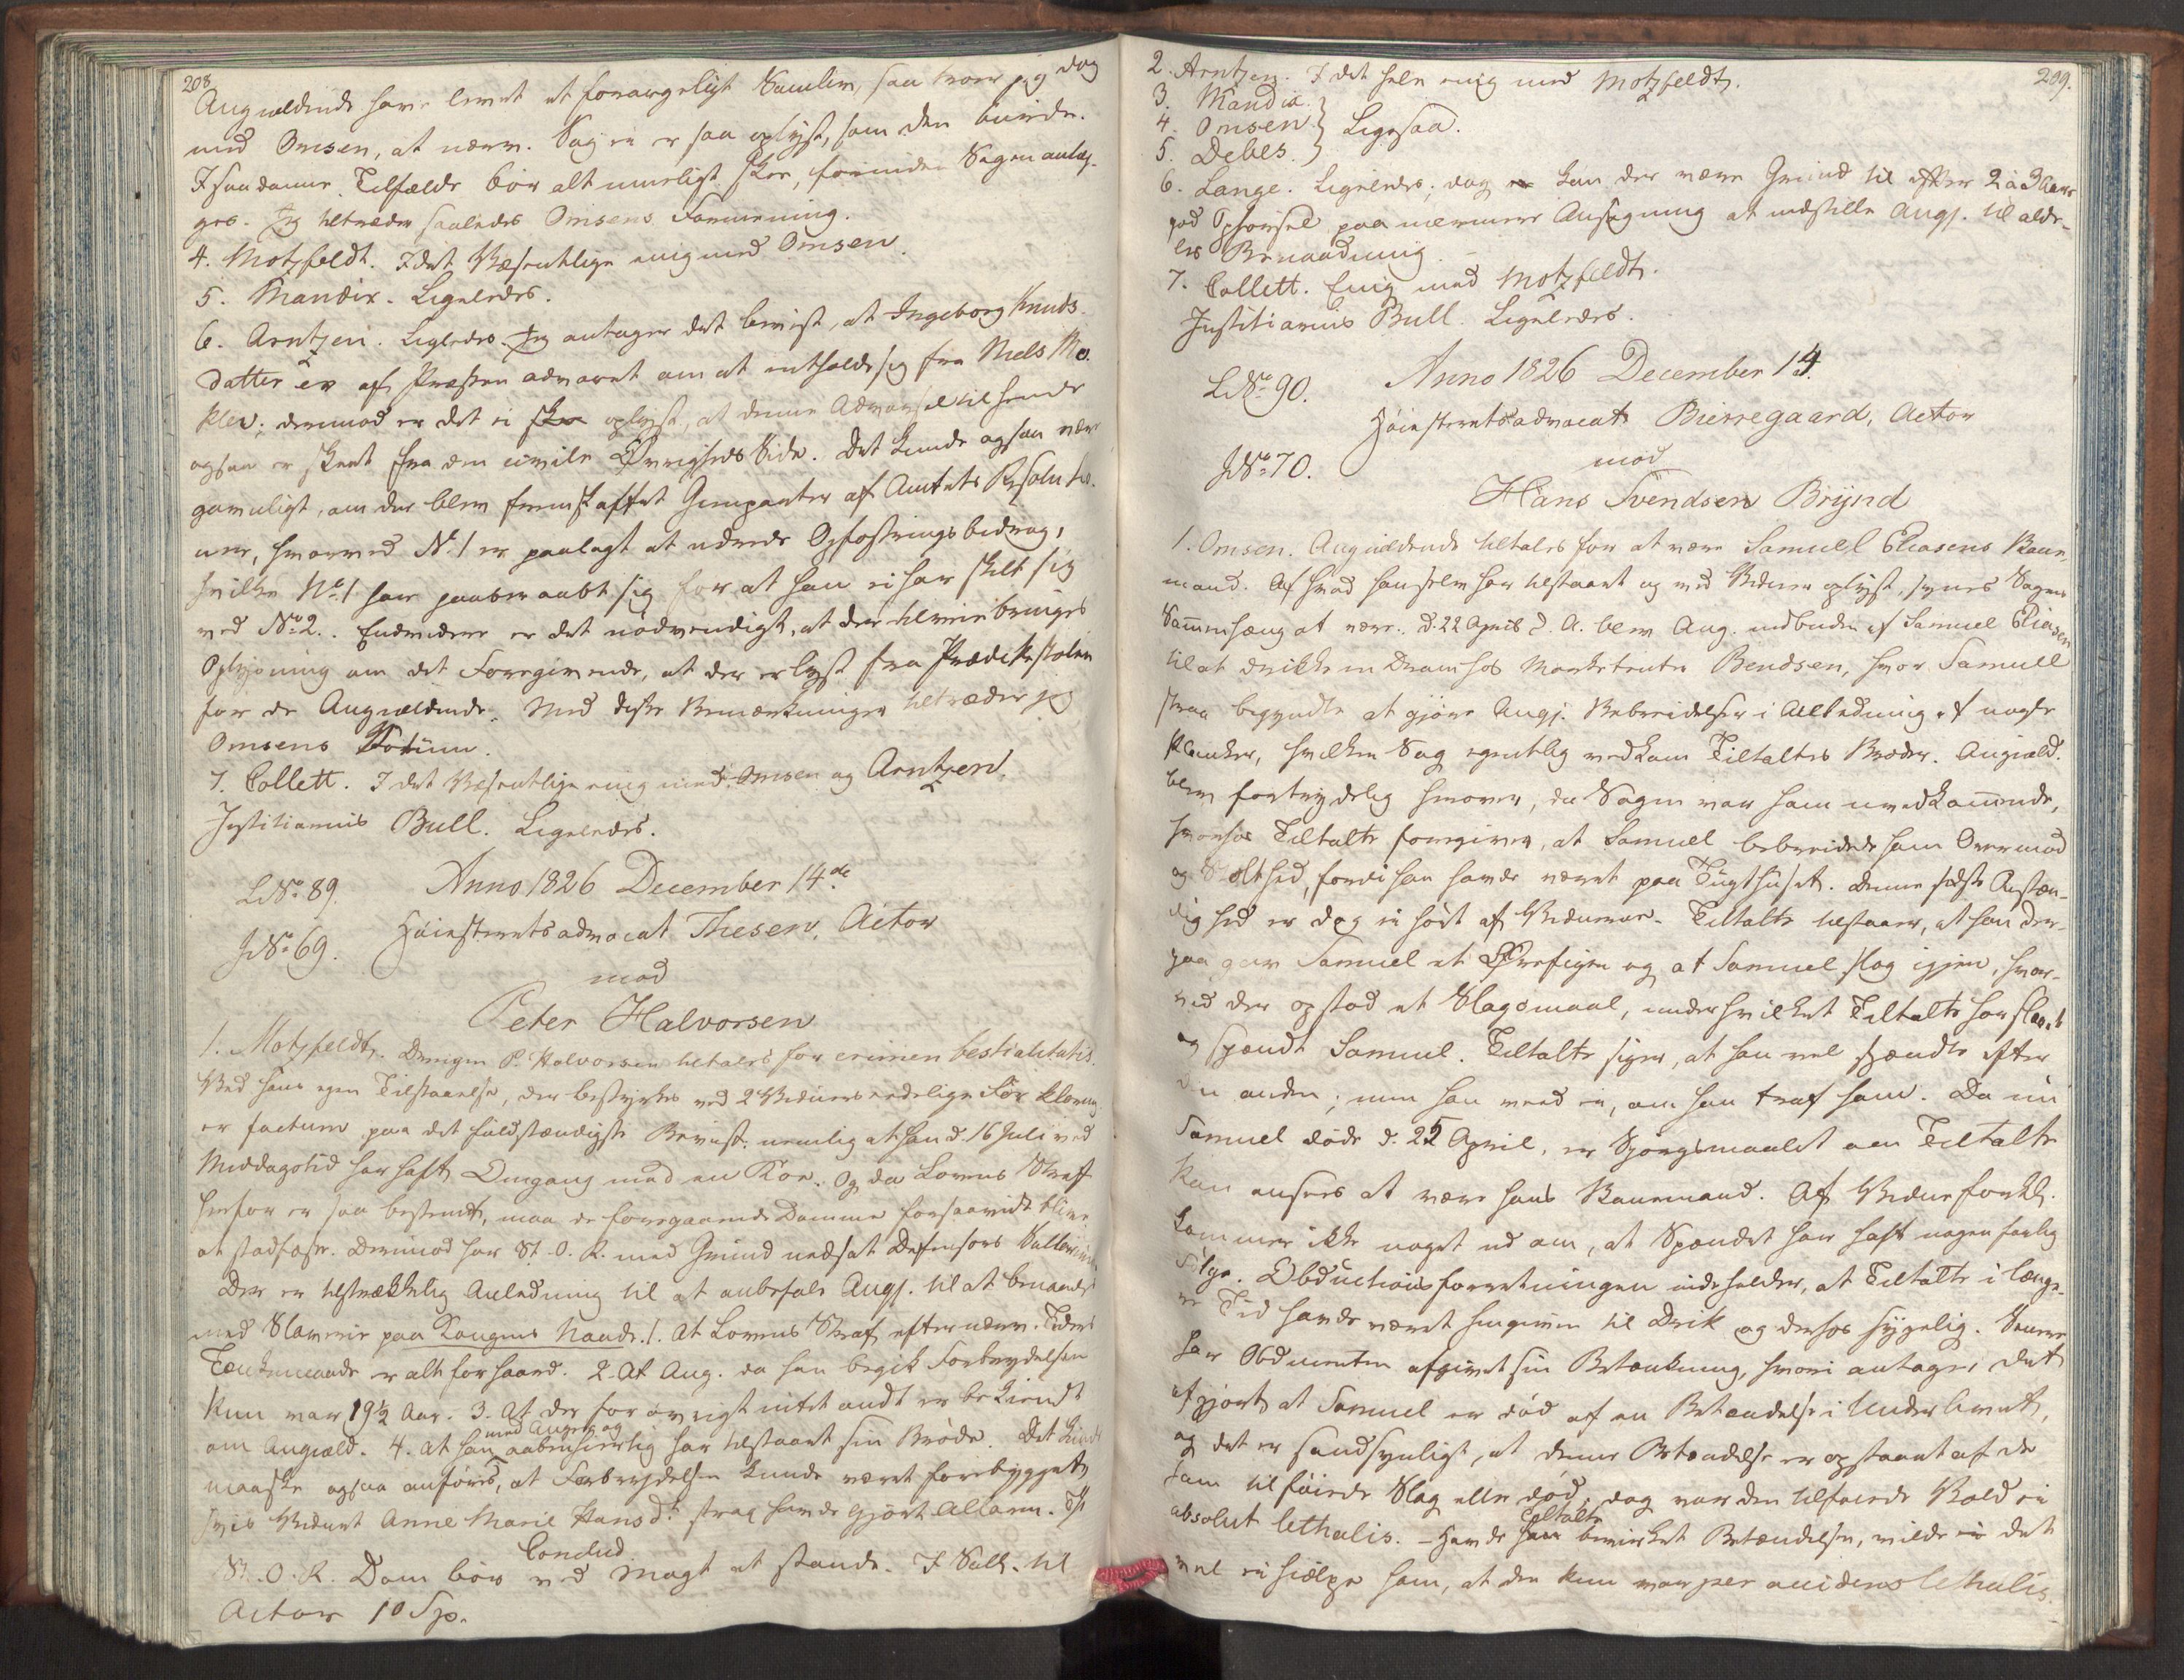 208.
Angieldende have levet et forargeligt Samliv, saa troer jeg dog
med Omsen, at nærv. Sag ei er saa oplyst, som den burde.
I saadanne Tilfælde bör alt mueligt skee, forinden Sagen anlæg-
ges. Jeg tiltræder saaledes Omsens Formening.
4. Motzfeldt. I det Væsentlige enig med Omsen.
5. Mandix. Ligeledes.
6. Arntzen. Ligeledes. Jeg antager det beviist, at Ingeborg Knuds-
datter er af Præsten advaret om at entholde sig fra Niels Mo-
klev; derimod er det ei oplyst, at denne Advarsel til hende
ogsaa er skeet fra den civile Øvrigheds Side. Det kunde ogsaa være
gavnligt, om der blev fremskaffet Gienparter af Amtets Resolutio-
ner, hvorved No 1 er paalagt at udrede Opfostringsbidrag,
hvilke No 1 har paaberaabt sig for at han ei har skilt sig
ved No 2. Endvidere er det nödvendigt, at der tilveiebringes
Oplysning om det Foregivende, at der er lyst fra Prædikestolen
for de Angieldende. Med disse Bemærkninger tiltræder jeg
Omsens Votum.
7. Collett. I det Væsentlige enig med Omsen og Arntzen.
Justitiarius Bull. Ligeledes.
LNo 89. Anno 1826 December 14de
JNo 69. Höiesteretsadvocat Thesen, Actor
mod
Peter Halvorsen
1. Motzfeldt. Drengen P. Halvorsen tiltales for crimen bestialitatis.
Ved hans egen Tilstaaelse, der bestyrkes ved 2 Vidners eedelige Forklaring
er factum paa det fuldstændigste Beviist: nemlig at han d. 16 Juli ved
Middagstid har haft Omgang med en Koe. Og da Lovens Straf
herfor er saa bestemt, maa de foregaaende Domme forsaavidt blive
at stadfæste. Derimod har St. O. R. med Grund nedsat Defensors
Der er tilstrækkelig Anledning til at anbefale Angj. til at benaades
med Slaverie paa Kongens Naade. 1. At Lovens Straf efter nærv. Tiders
Tænkemaade er alt for haard. 2. At Ang. da han begik Forbrydelsen
kun var 19½ Aar. 3. At der for övrigt intet ondt er bekiendt
om Angield. 4. At han med Anger og aabenhiertig har tilstaaet sin Bröde. Det kunde
maaske ogsaa anföres, at Forbrydelsen kunde været forebygget
hvis Vidnet Anne Marie Hansdr strax havde gjort Allarm. Thi
Conclud.
St. O. R. Dom bör ved Magt at stande. I Sall. til
Actor 10 Sp.
209.
2. Arntzen. I det hele enig med Motzfeldt.
3. Mandix.
4. Omsen } Ligesaa.
5. Debes.
6. Lange. Ligeledes; dog kan der være Grund til efter 2 à 3 Aars
god Opförsel paa nærmere Ansögning at indstille Angj. til alde-
les Benaadning.
7. Collett. Enig med Motzfeldt.
Justitiarius Bull. Ligeledes.
LNo 90. Anno 1826 December 14.
Höiesteretsadvocat Bierregaard, Actor
JNo 70. mod
Hans Svendsen Brynd
1. Omsen. Angieldende tiltales for at være Samuel Eliasens Bane-
mand. Af hvad han selv har tilstaaet og ved Vidner oplyst, synes Sagens
Sammenhæng at være. D. 22 April d. A. blev Ang. indbuden af Samuel Eliasen
til at drikke en Dram hos Marketenter Bendsen, hvor Samuel
strax begyndte at gjöre Angj. Bebreidelser i Anledning af nogle
Planker, hvilken Sag egentlig vedkom Tiltaltes Broder. Angield.
blev fortrydelig herover, da Sagen var ham uvedkommende,
hvorhos Tiltalte foregiver, at Samuel bebreidede ham Overmod
og Stolthed, fordi han havde været paa Tugthuset. Denne sidste Omstæn-
dighed er dog ei hört af Vidnerne. Tiltalte tilstaaer, at han der-
paa gav Samuel et Örefigen og at Samuel slog igjen, hvor-
ved der opstod et Slagsmaal, under hvilket Tiltalte har slaaet
og spændt Samuel. Tiltalte siger, at han vel spændte efter
den anden; men han veed ei, om han traf ham. Da nu
Samuel döde d. 25 April, er Spörgsmaalet om Tiltalte
kan ansees at være hans Banemand. Af Vidneforkl.
kommer ikke noget ud om, at Spændet har haft nogen farlig
Fölge. Obductionsforretningen indeholder, at Tiltalte i læng-
re Tid havde været hengiven til Drik og derhos sygelig. Senere
har Obducenten afgivet sin Betænkning, hvori antages det
afgjort at Samuel er död af en Betændelse i Underlivet,
og det er sandsynligt, at denne Betændelse er opstaaet af de
ham tilföiede Slag eller död, dog var den tilföiede Vold ei
absolut lethalis. – Havde Tiltalte bevirket Betændelsen, vilde det
vel ei hielpe ham, at den kun var per accidens lethalis.